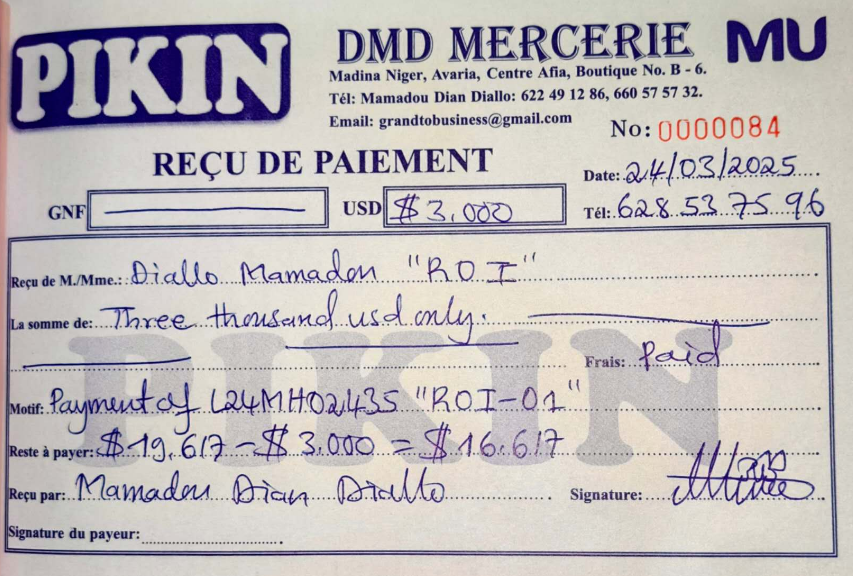 PIKIN
DMD MERCERIE
MU
Madina Niger, Avaria, Centre Afia, Boutique No. B - 6.
Tél: Mamadou Dian Diallo: 622 49 12 86, 660 57 57 32.
Email: grandtobusiness@gmail.com
No: 0000084
REÇU DE PAIEMENT
Date: 24/03/2025
GNF
USD $ 3.000
Tél: 628 53 75 96
Reçu de M./Mme.: Diallo Mamadou "ROI"
La somme de: Three thousand usd only.
Frais: Paid
PIKIN
Motif: Payment of L24MH02435 "ROI-01"
Reste à payer: $ 19.617 - $ 3.000 = $ 16.617
Reçu par: Mamadou Dian Diallo
Signature:
Signature du payeur: